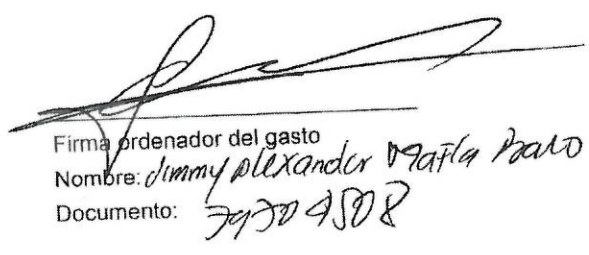 Firma ordenador del gasto
Nombre: Jimmy Alexander
Documento: 79704508